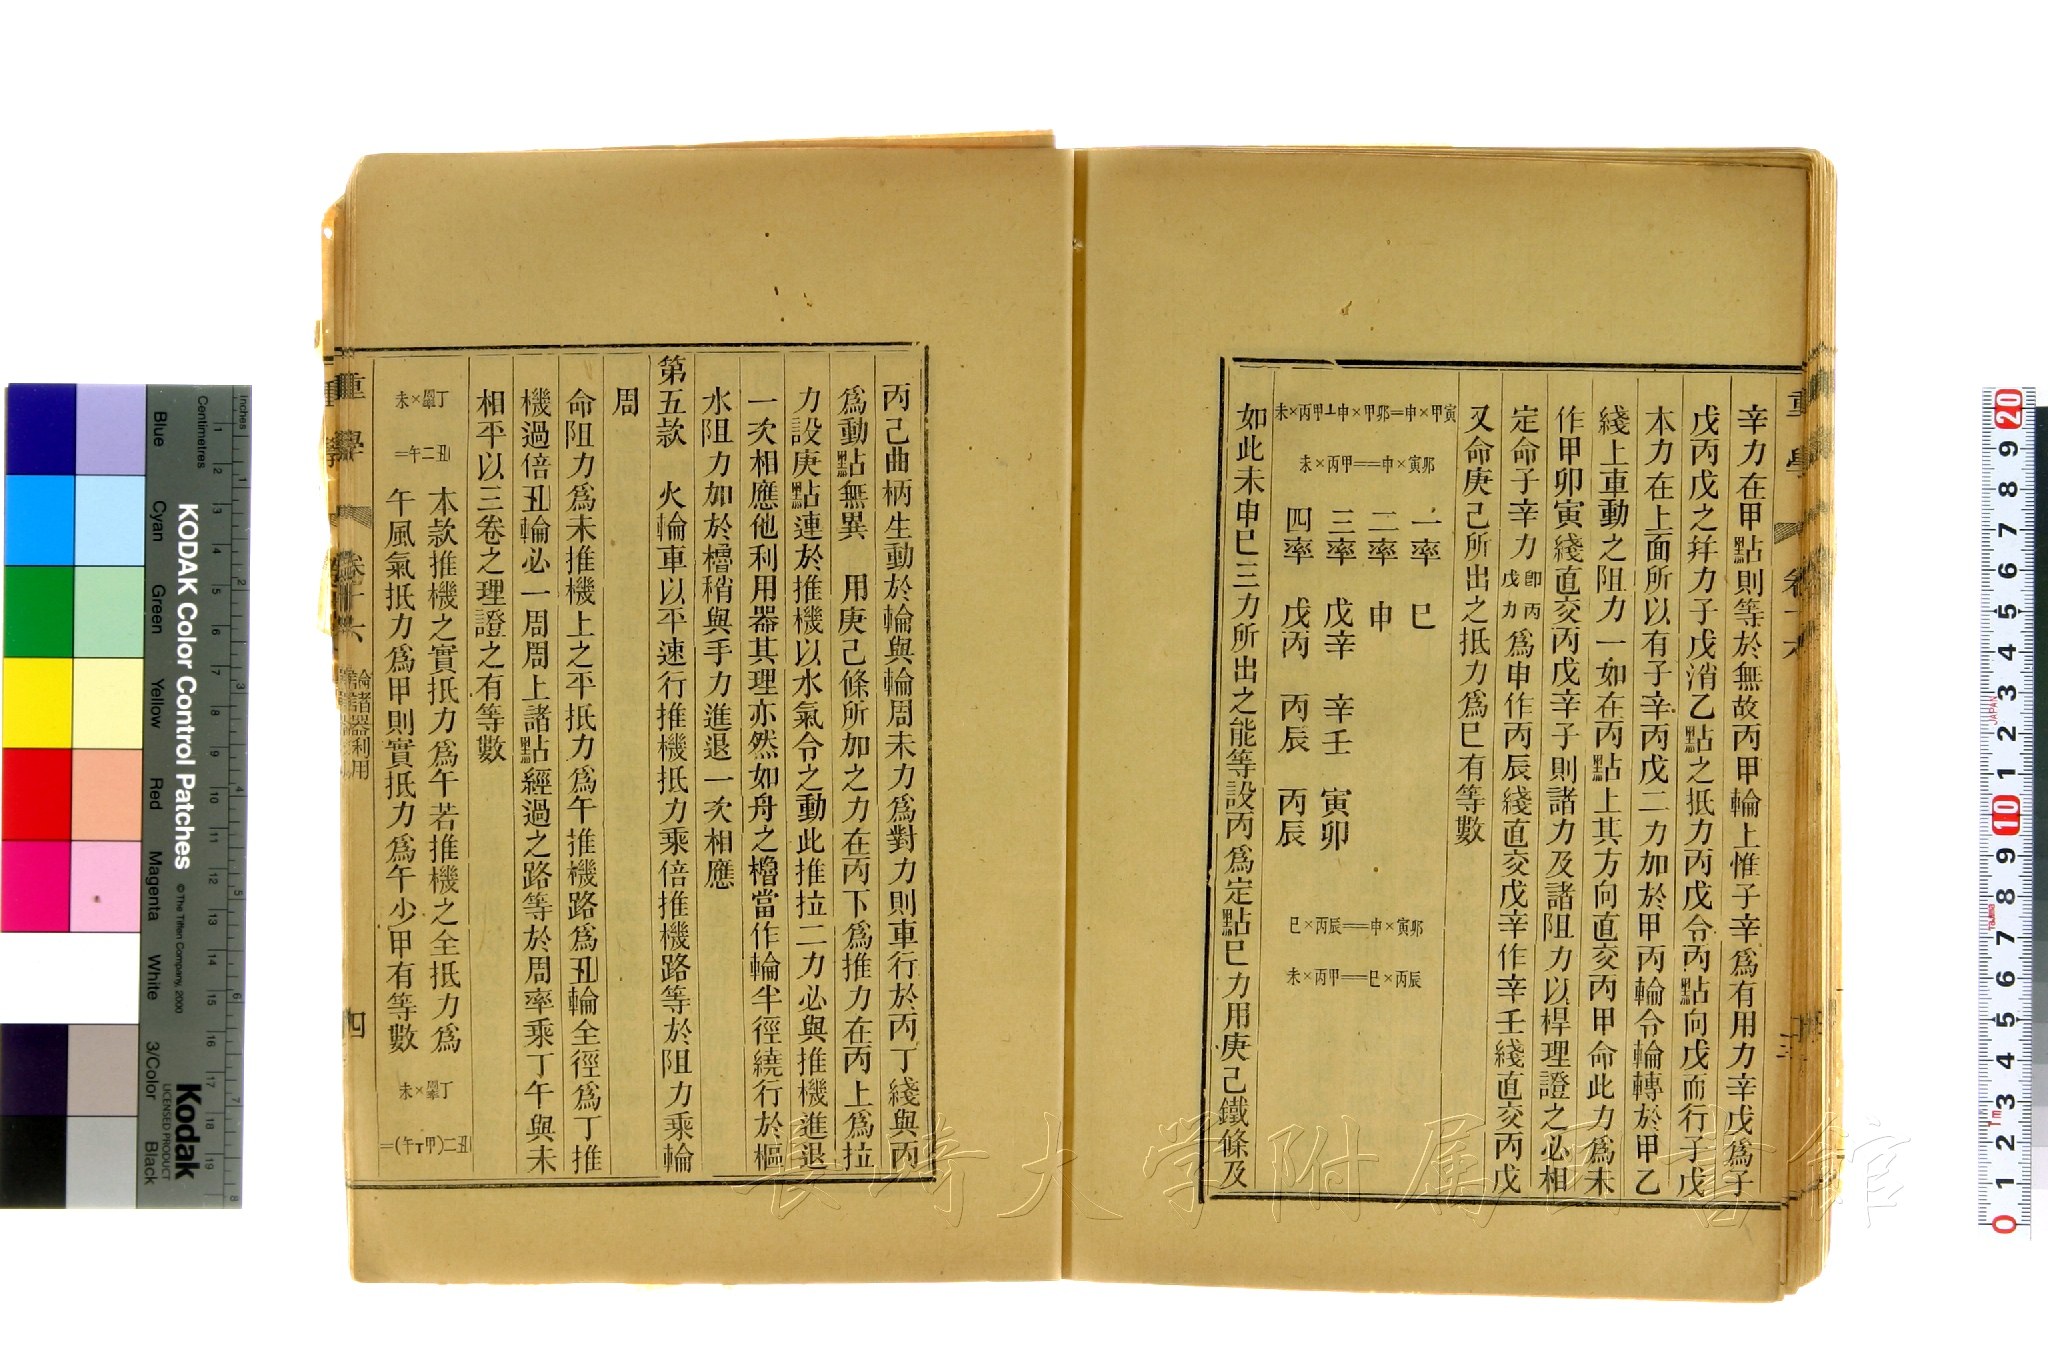 辛力在甲點則等於無故丙甲輪上惟子辛爲有用力辛戊爲子
戊丙戊之幷力子戊消乙點之抵力丙戊令丙點向戊而行子戊
本力在上面所以有子辛丙戊二力加於甲丙輪令輪轉於甲乙
綫上車動之阻力一如在丙點上其方向直交丙甲命此力爲未
作甲卯寅綫直交丙戊辛子則諸力及諸阻力以桿理證之必相
定命子辛力卽丙戊力爲申作丙辰綫直交戊辛作辛壬綫直交丙戊
又命庚己所出之抵力爲巳有等數
未×丙甲⊥申×甲卯=申×甲寅
未×丙甲==申×寅卯
一率 巳
二率 申
三率 戊辛 辛壬 寅卯
四率 戊丙 丙辰 丙辰
巳×丙辰==申×寅卯
未×丙甲==巳×丙辰
如此未申巳三力所出之能等設丙爲定點巳力用庚己鐵條及
丙己曲柄生動於輪與輪周未力爲對力則車行於丙丁綫與丙
爲動點無異 用庚己條所加之力在丙下爲推力在丙上爲拉
力設庚點連於推機以水氣令之動此推拉二力必與推機進退
一次相應他利用器其理亦然如舟之櫓當作輪半徑繞行於樞
水阻力加於櫓稍與手力進退一次相應
第五款 火輪車以平速行推機抵力乘倍推機路等於阻力乘輪
周
命阻力爲未推機上之平抵力爲午推機路爲丑輪全徑爲丁推
機過倍丑輪必一周周上諸點經過之路等於周率乘丁午與未
相平以三卷之理證之有等數
未×周率丁
=午二丑
本款推機之實抵力爲午若推機之全抵力爲
午風氣抵力爲甲則實抵力爲午少甲有等數
未×周率丁
=(午⊤甲)二丑
重學
卷十六
論諸器利用
四
KODAK Color Control Patches
©The Tiffen Company, 2000
Kodak
LICENSED PRODUCT
Inches
Centimetres
Blue
Cyan
Green
Yellow
Red
Magenta
White
3/Color
Black
長崎大学附属図書館
JAPAN